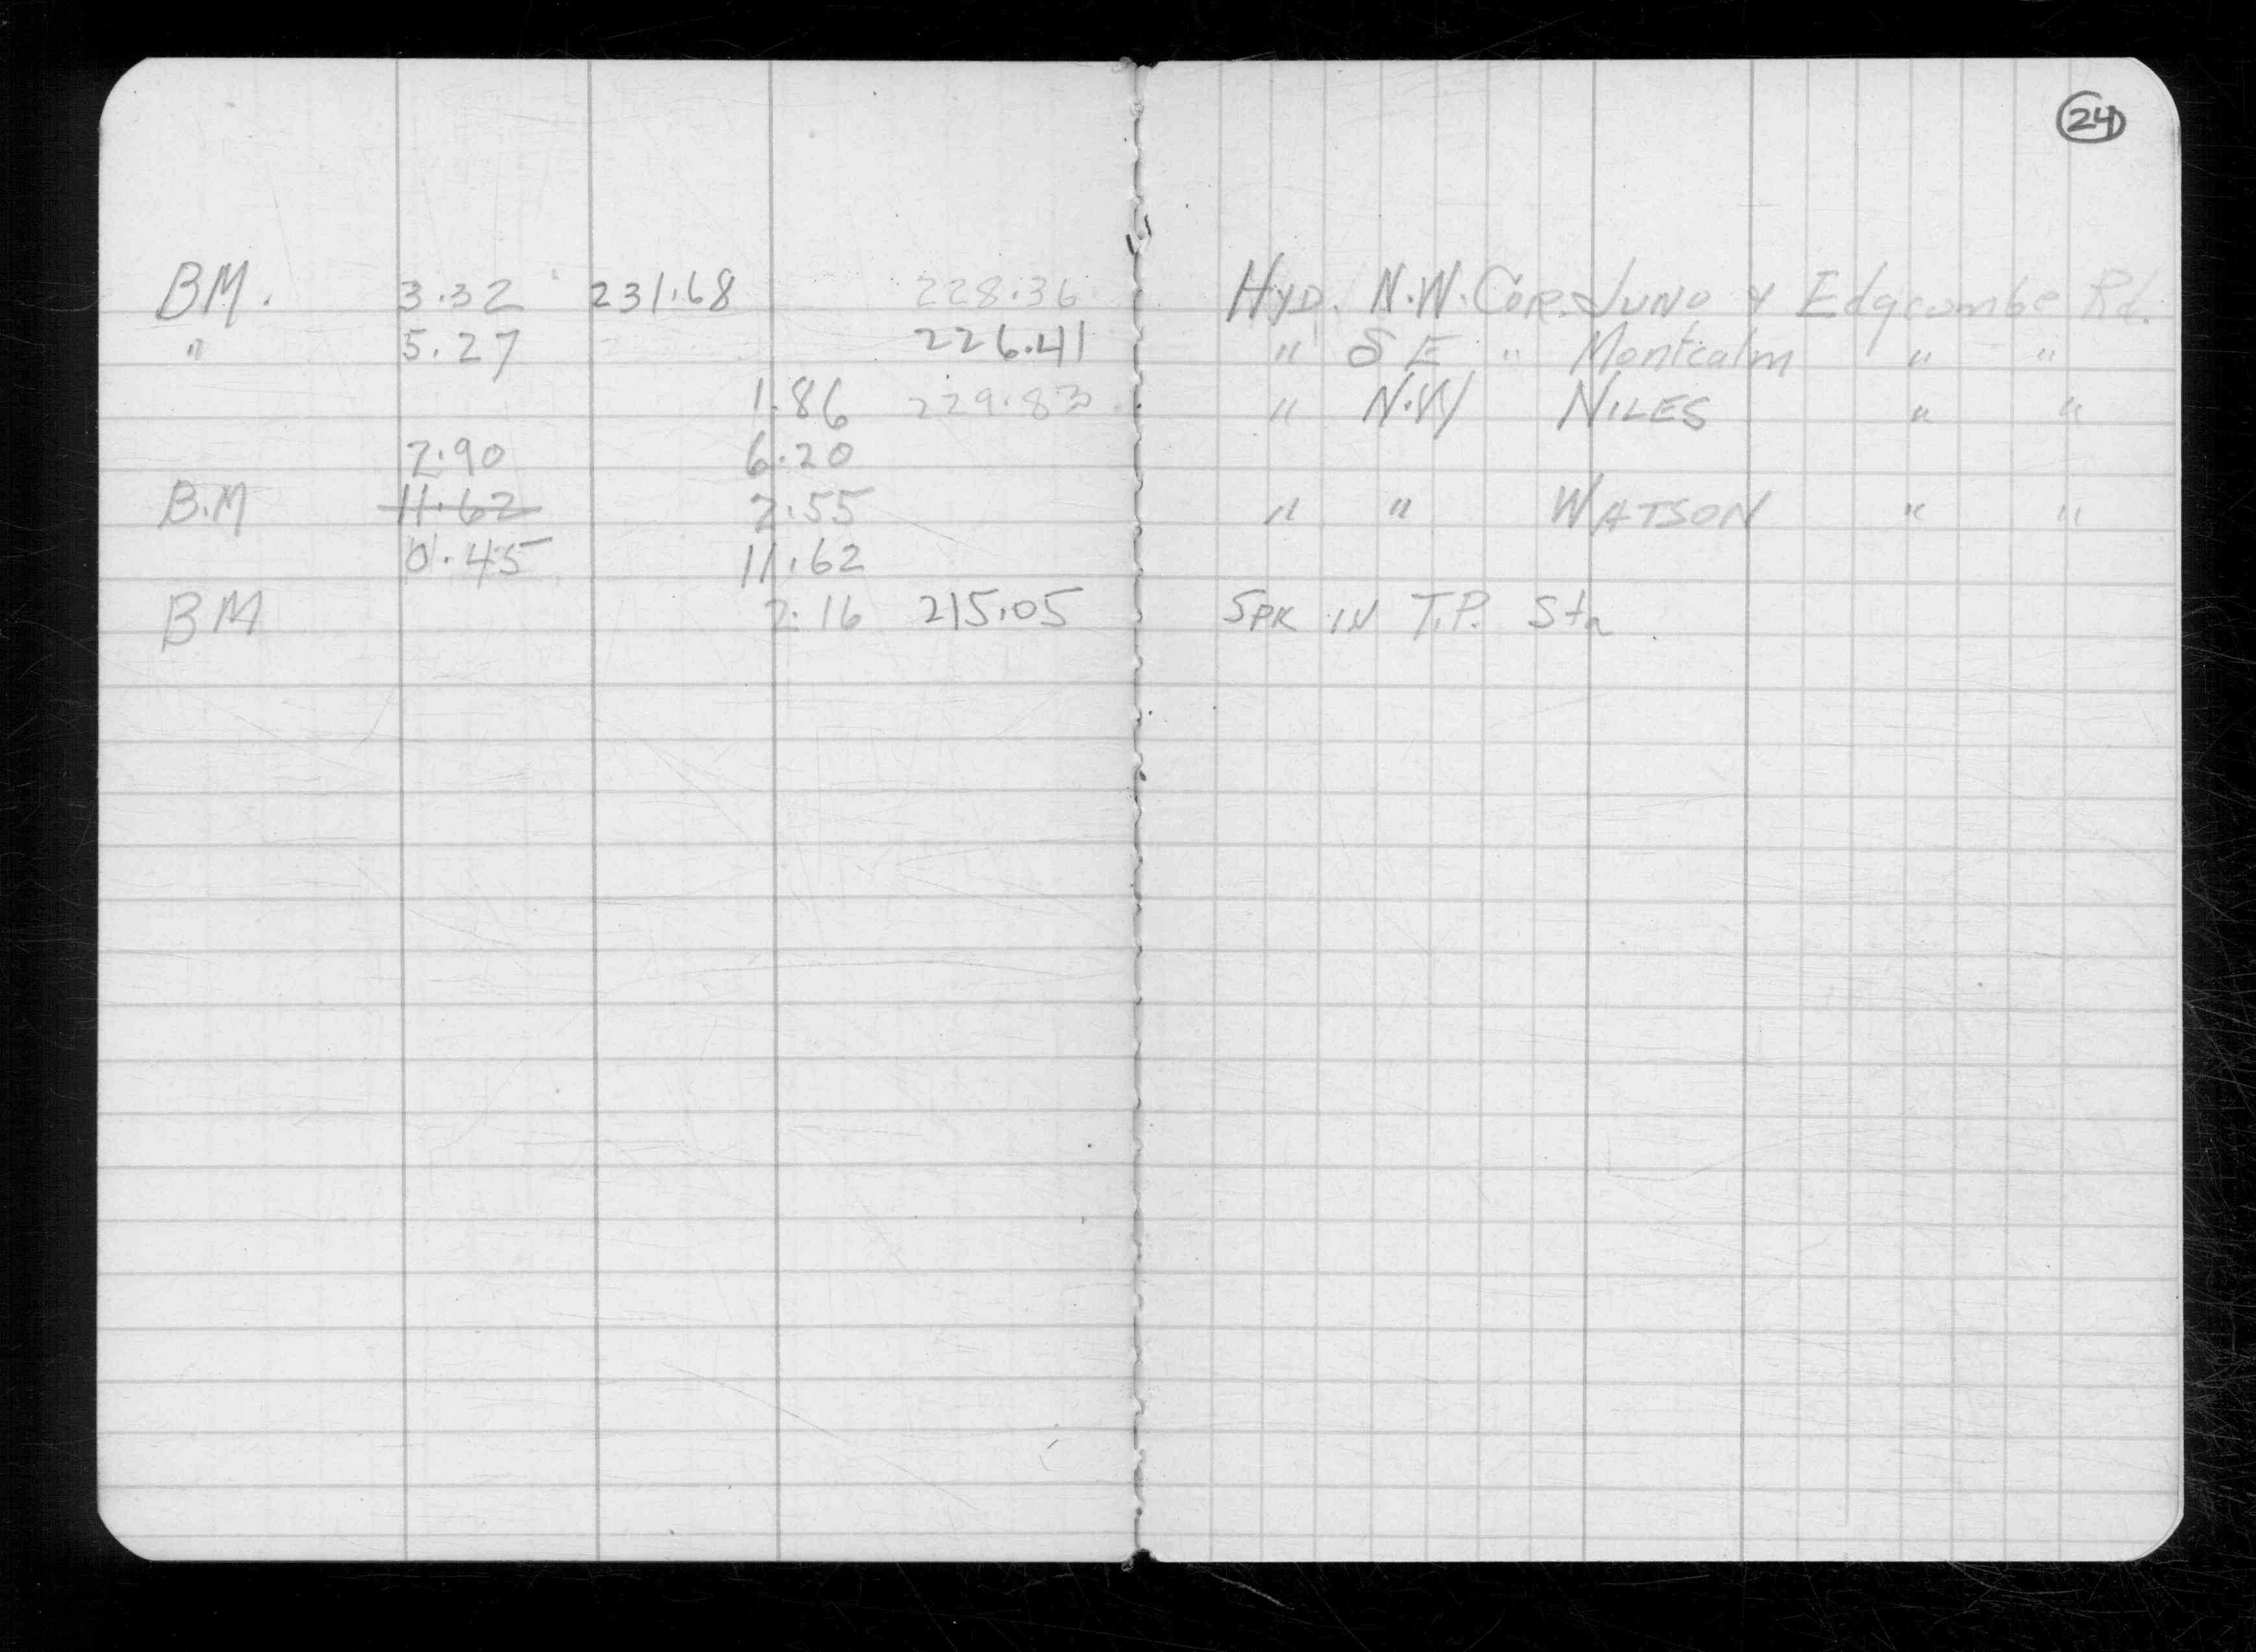 24
BM. 3.32 231.68 228.36 HYD. N.W. COR. JUNO & Edgcombe Rd.
" 5.27 226.41 " S E " Montcalm " "
1.86 229.83 " N.W NILES " "
2.90 6.20
B.M 11.62 2.55 " " WATSON " "
0.45 11.62
BM 2.16 215.05 SPK IN T.P. Sta